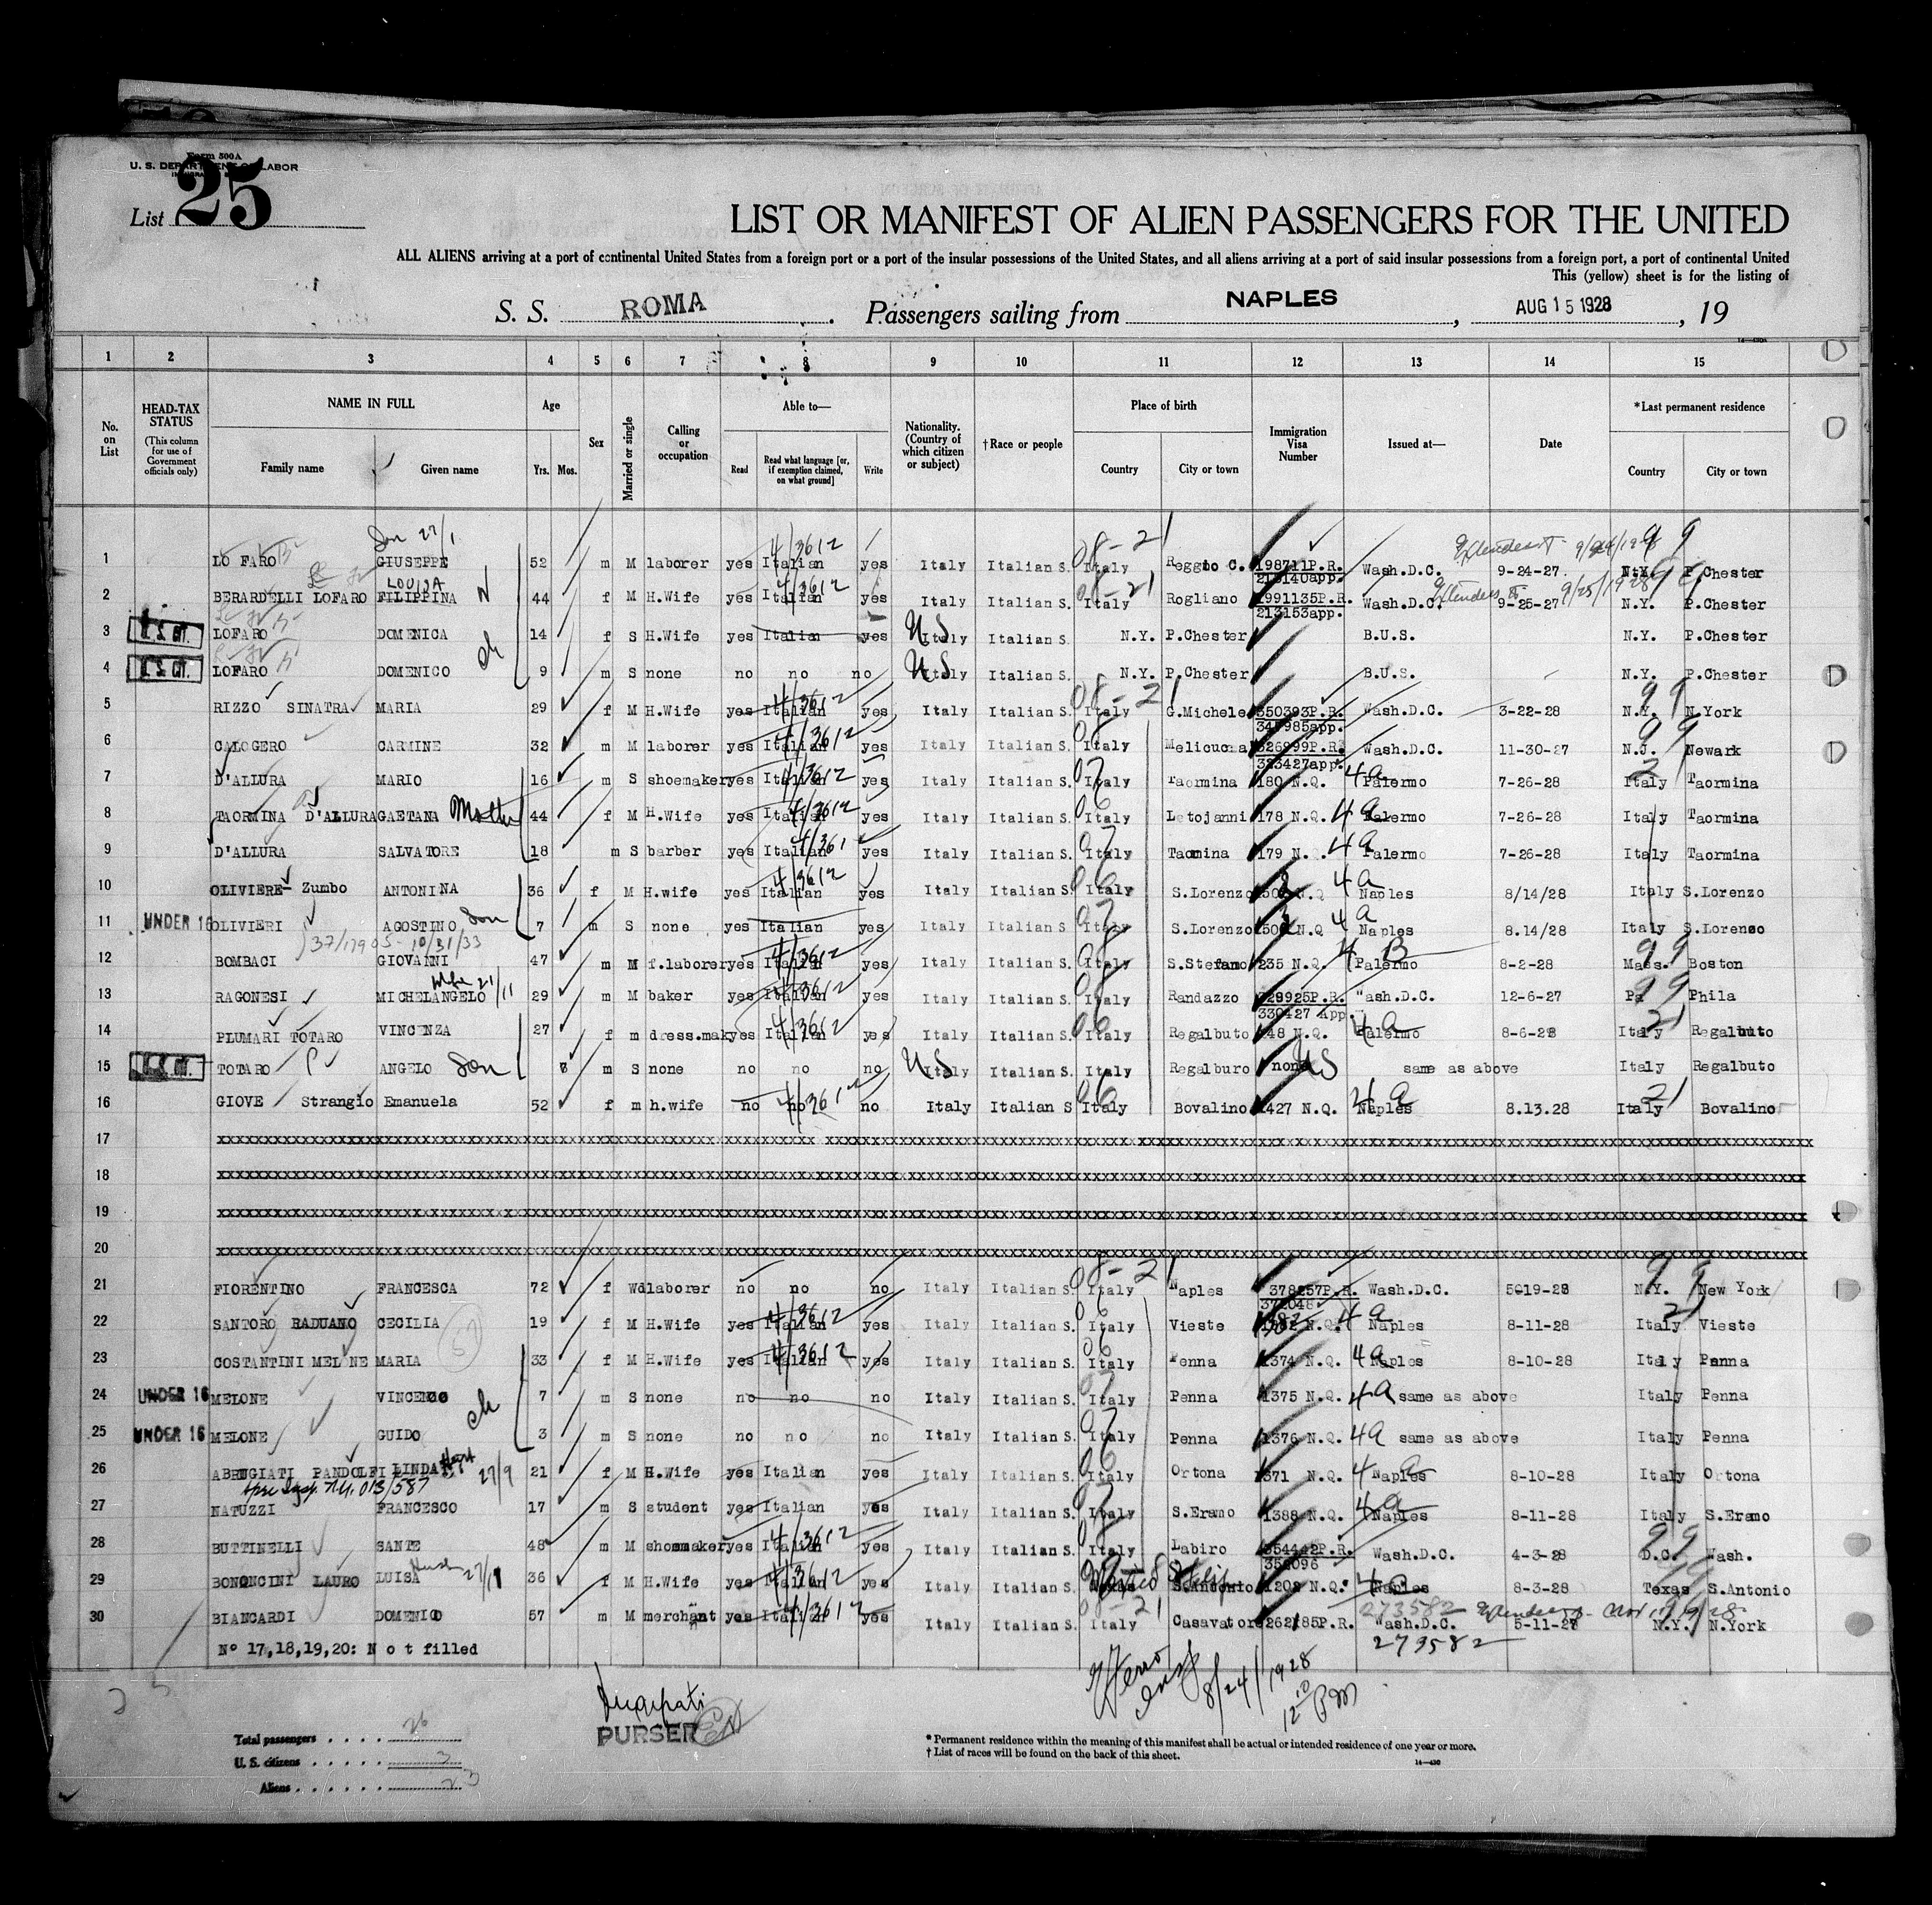 Form 500A
U. S. DEPARTMENT OF LABOR
List 25
LIST OR MANIFEST OF ALIEN PASSENGERS FOR THE UNITED
ALL ALIENS arriving at a port of continental United States from a foreign port or a port of the insular possessions of the United States, and all aliens arriving at a port of said insular possessions from a foreign port, a port of continental United
This (yellow) sheet is for the listing of
S. S. ROMA. Passengers sailing from NAPLES, AUG 15 1928, 19
1 2 3 4 5 6 7 8 9 10 11 12 13 14 15
No. on List
HEAD-TAX STATUS (This column for use of Government officials only)
NAME IN FULL
Family name
Given name
Age
Yrs. Mos.
Sex
Married or single
Calling or occupation
Able to—
Read
Read what language [or, if exemption claimed, on what ground]
Write
Nationality. (Country of which citizen or subject)
†Race or people
Place of birth
Country
City or town
Immigration Visa Number
Issued at—
Date
*Last permanent residence
Country
City or town
1 LO FARO GIUSEPPE 52 m M laborer yes Italian yes Italy Italian S. Italy Reggio C. 198711P.R. 213140app. Wash.D.C. 9-24-27 N.Y. P.Chester
2 BERARDELLI LOFARO FILIPPINA LOUISA 44 f M H.Wife yes Italian yes Italy Italian S. Italy Rogliano 1991135P.R. 213153app. Wash.D.C. 9-25-27 9/25/1928 N.Y. P.Chester
3 U.S. CIT. LOFARO DOMENICA 14 f S H.Wife yes Italian yes US Italy Italian S. N.Y. P.Chester B.U.S. N.Y. P.Chester
4 U.S. CIT. LOFARO DOMENICO ch 9 m S none no no no US Italy Italian S. N.Y. P.Chester B.U.S. N.Y. P.Chester
5 RIZZO SINATRA MARIA 29 f M H.Wife yes Italian yes Italy Italian S. Italy G.Michele 350393P.R. Wash.D.C. 3-22-28 N.Y. N.York
6 CALOGERO CARMINE 32 m M laborer yes Italian yes Italy Italian S. Italy Melicucca 326999P.R. 323427app. Wash.D.C. 11-30-27 N.J. Newark
7 D'ALLURA MARIO 16 m S shoemaker yes Italian yes Italy Italian S. Italy Taormina 180 N.Q. 4a Palermo 7-26-28 Italy Taormina
8 TAORMINA D'ALLURA GAETANA Mother 44 f M H.Wife yes Italian yes Italy Italian S. Italy Letojanni 178 N.Q. 4a Palermo 7-26-28 Italy Taormina
9 D'ALLURA SALVATORE 18 m S barber yes Italian yes Italy Italian S. Italy Taomina 179 N.Q. 4a Palermo 7-26-28 Italy Taormina
10 OLIVIERE Zumbo ANTONINA 36 f M H.wife yes Italian yes Italy Italian S. Italy S.Lorenzo N.Q 4a Naples 8/14/28 Italy S.Lorenzo
11 UNDER 16 OLIVIERI AGOSTINO Son 7 m S none yes Italian yes Italy Italian S. Italy S.Lorenzo N.Q 4a Naples 8.14/28 Italy S.Lorenzo
10/31/33
12 BOMBACI GIOVANNI 47 m M f.laborer yes Italian yes Italy Italian S. Italy S.Stefano 235 N.Q. 4 B Palermo 8-2-28 Mass. Boston
13 RAGONESI MICHELANGELO Wife 21/11 29 m M baker yes Italian yes Italy Italian S. Italy Randazzo 329925P.R. 330427 App. "ash.D.C. 12-6-27 Pa Phila
14 PLUMARI TOTARO VINCENZA 27 f m dress.mak yes Italian yes Italy Italian S. Italy Regalbuto 248 N.Q. 4a Palermo 8-6-28 Italy Regalbuto
15 U.S. CIT. TOTARO ANGELO Son 8 m S none no no no US Italy Italian S. Italy Regalburo none US same as above Italy Regalbuto
16 GIOVE Strangio Emanuela 52 f m h.wife no no no Italy Italian S Italy Bovalino 1427 N.Q. 4a Naples 8.13.28 Italy Bovalino
17
18
19
20
21 FIORENTINO FRANCESCA 72 f Wd laborer no no no Italy Italian S. Italy Naples 378257P.R. 372048 Wash.D.C. 5-19-28 N.Y. New York
22 SANTORO RADUANO CECILIA 19 f M H.Wife yes Italian yes Italy Italian S. Italy Vieste 1382 N.Q. 4a Naples 8-11-28 Italy Vieste
23 COSTANTINI MELONE MARIA 33 f M H.Wife yes Italian yes Italy Italian S. Italy Penna 1374 N.Q. 4a Naples 8-10-28 Italy Penna
24 UNDER 16 MELONE VINCENZO 7 m S none no no no Italy Italian S. Italy Penna 1375 N.Q. 4a same as above Italy Penna
25 UNDER 16 MELONE GUIDO ch 3 m S none no no no Italy Italian S. Italy Penna 1376 N.Q. 4a same as above Italy Penna
26 ABRUGIATI PANDOLFI LINDA 27/9 21 f M H.Wife yes Italian yes Italy Italian S. Italy Ortona 1371 N.Q. 4a Naples 8-10-28 Italy Ortona
27 NATUZZI FRANCESCO 17 m S student yes Italian yes Italy Italian S. Italy S.Eramo 1388 N.Q. 4a Naples 8-11-28 Italy S.Eramo
28 BUTTINELLI SANTE 48 m M shoemaker yes Italian yes Italy Italian S. Italy Labiro 354442P.R. 356096 Wash.D.C. 4-3-28 D.C. Wash.
29 BONONCINI LAURO LUISA 36 f M H.Wife yes Italian yes Italy Italian S. Mexico S.Antonio 1202 N.Q. Naples 8-3-28 Texas S.Antonio
30 BIANCARDI DOMENICO 57 m M merchant yes Italian yes Italy Italian S. Italy Casavatore 262185P.R. 273582 Wash.D.C. 5-11-28 N.Y. N.York
273582
No 17,18,19,20: N o t filled
8/24/1928
12 10 PM
PURSER
Total passengers . . . . 26
U. S. citizens . . . . . 3
Aliens . . . . . . 23
* Permanent residence within the meaning of this manifest shall be actual or intended residence of one year or more.
† List of races will be found on the back of this sheet.
14—430